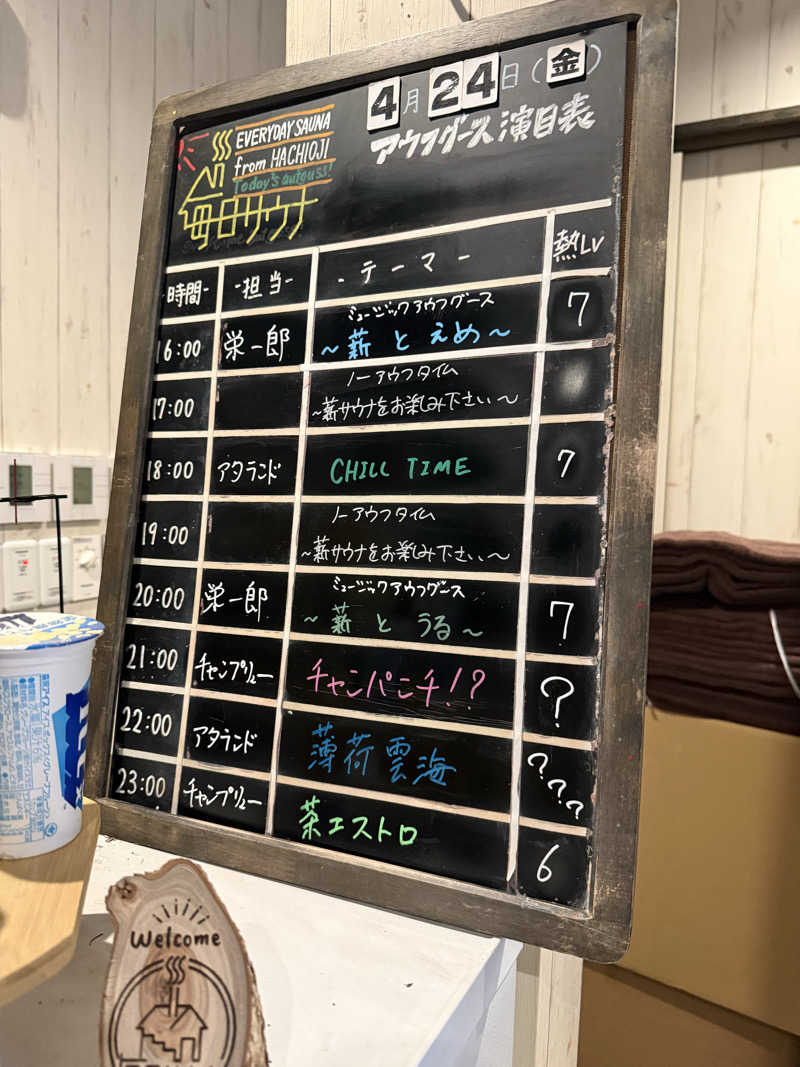 4月24日(金)
アウフグース演目表
EVERYDAY SAUNA
from HACHIOJI
Today's aufguss!
毎日サウナ
-時間- -担当- -テーマ- 熱Lv
16:00 栄一郎 ミュージックアウフグース 7
～薪とえめ～
17:00 ノーアウフタイム
～薪サウナをお楽しみ下さい～
18:00 アタランド CHILL TIME 7
19:00 ノーアウフタイム
～薪サウナをお楽しみ下さい～
20:00 栄一郎 ミュージックアウフグース 7
～薪とうる～
21:00 チャンプリュー チャンパンチ!? ?
22:00 アタランド 薄荷雲海 ???
23:00 チャンプリュー 茶エストロ 6
Welcome